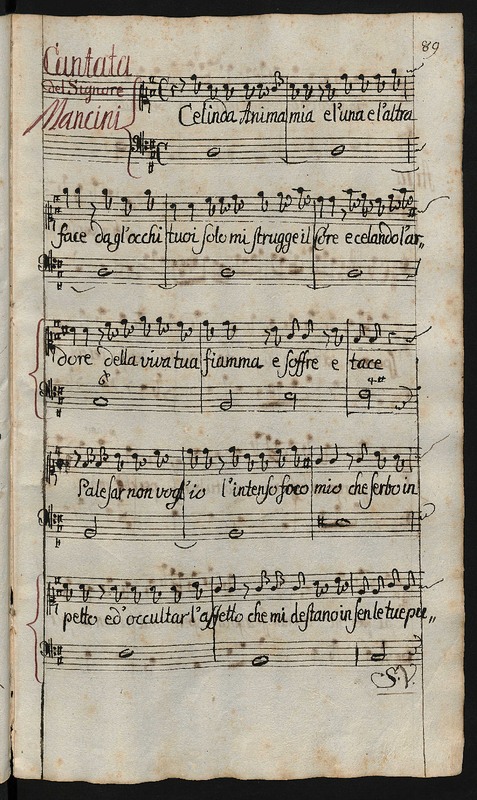 89
Cantata
del Signore
Mancini
Celinda Anima mia e l'una e l'altra
face da gl'occhi tuoi solo mi strugge il core e celando l'ar„
dore della viva tua fiamma e soffre e tace
Palesar non vogl'io l'intenso foco mio che serbo in
petto ed' occultar l'affetto che mi destano in sen le tue pu„
S.V.